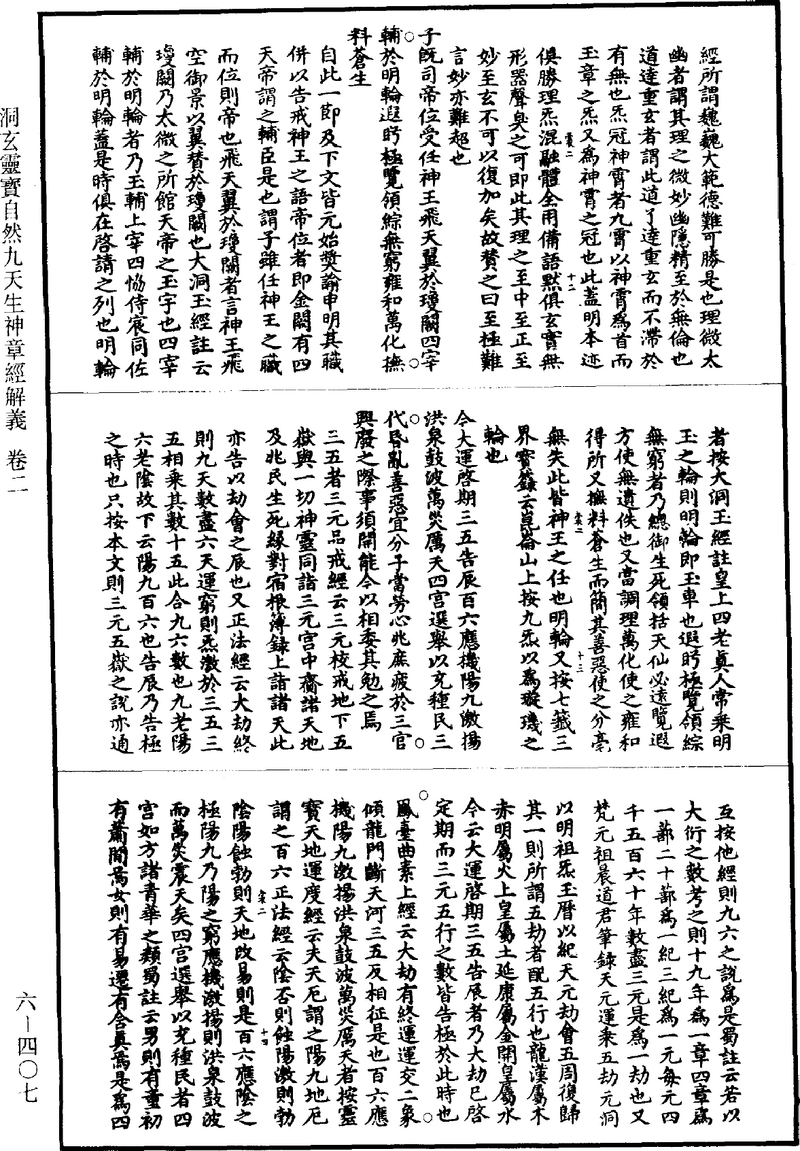 經所謂巍巍大範德難可勝是也理微太
幽者謂其理之微妙幽隱精至於無倫也
道達重玄者謂此道了達重玄而不滯於
有無也炁冠神霄者九霄以神霄爲首而
玉章之炁又爲神霄之冠也此蓋明本迹
俱勝理炁混融體全用備語默俱玄實無
形器聲臭之可即此其理之至中至正至
妙至玄不可以復加矣故贊之曰至極難
言妙亦難超也
子既司帝位受任神王飛天翼於瓊闕四宰
輔於明輪遐眄極覽領綜無窮雍和萬化撫
料蒼生
自此一節及下文皆元始獎諭申明其職
併以告戒神王之語帝位者即金闕有四
天帝謂之輔臣是也謂子雖任神王之職
而位則帝也飛天翼於瓊闕者言神王飛
空御景以翼贊於瓊闕也大洞玉經註云
瓊闕乃太微之所館天帝之玉宇也四宰
輔於明輪者乃玉輔上宰四恊侍宸同佐
輔於明輪蓋是時俱在啓請之列也明輪
者按大洞玉經註皇上四老真人常乘明
玉之輪則明輪即玉車也遐眄極覽領綜
無窮者乃總御生死領括天仙必遠覽遐
方使無遺佚也又當調理萬化使之雍和
得所又撫料蒼生而簡其善惡使之分毫
無失此皆神王之任也明輪又按七籤三
界寶籙云崑崙山上按九炁以爲璇璣之
輪也
今大運啓期三五告辰百六應機陽九激揚
洪泉鼓波萬災厲天四宮選舉以充種民三
代昏亂善惡宜分子當勞心兆庶疲於三官
興廢之際事須開能今以相委其勉之焉
三五者三元品戒經云三元校戒地下五
嶽與一切神靈同詣三元宮中齋諸天地
及兆民生死緣對宿根簿錄上詣諸天此
亦告以劫會之辰也又正法經云大劫終
則九天數盡六天運窮則炁激於三五三
五相乘其數十五此合九六數也九老陽
六老陰故下云陽九百六也告辰乃告極
之時也只按本文則三元五嶽之說亦通
互按他經則九六之說爲是蜀註云若以
大衍之數考之則十九年爲一章四章爲
一蔀二十蔀爲一紀三紀爲一元每元四
千五百六十年數盡三元是爲一劫也又
梵元祖晨道君筆錄天元運乘五劫元洞
以明祖炁玉曆以紀天元劫會五周復歸
其一則所謂五劫者配五行也龍漢屬木
赤明屬火上皇屬土延康屬金開皇屬水
今云大運啓期三五告辰者乃大劫已啓
定期而三元五行之數皆告極於此時也
鳳臺曲素上經云大劫有終運運交二象
傾龍門斷天河三五反相征是也百六應
機陽九激揚洪泉鼓波萬災厲天者按靈
寶天地運度經云夫天厄謂之陽九地厄
謂之百六正法經云陰否則蝕陽激則勃
陰陽蝕勃則天地改易則是百六應陰之
極陽九乃陽之窮應機激揚則洪泉鼓波
而萬災震天矣四宮選舉以充種民者四
宮如方諸青華之類蜀註云男則有童初
有蕭閒焉女則有易遷有含真焉是爲四
洞玄靈寶自然九天生神章經解義　卷二
六—四〇七